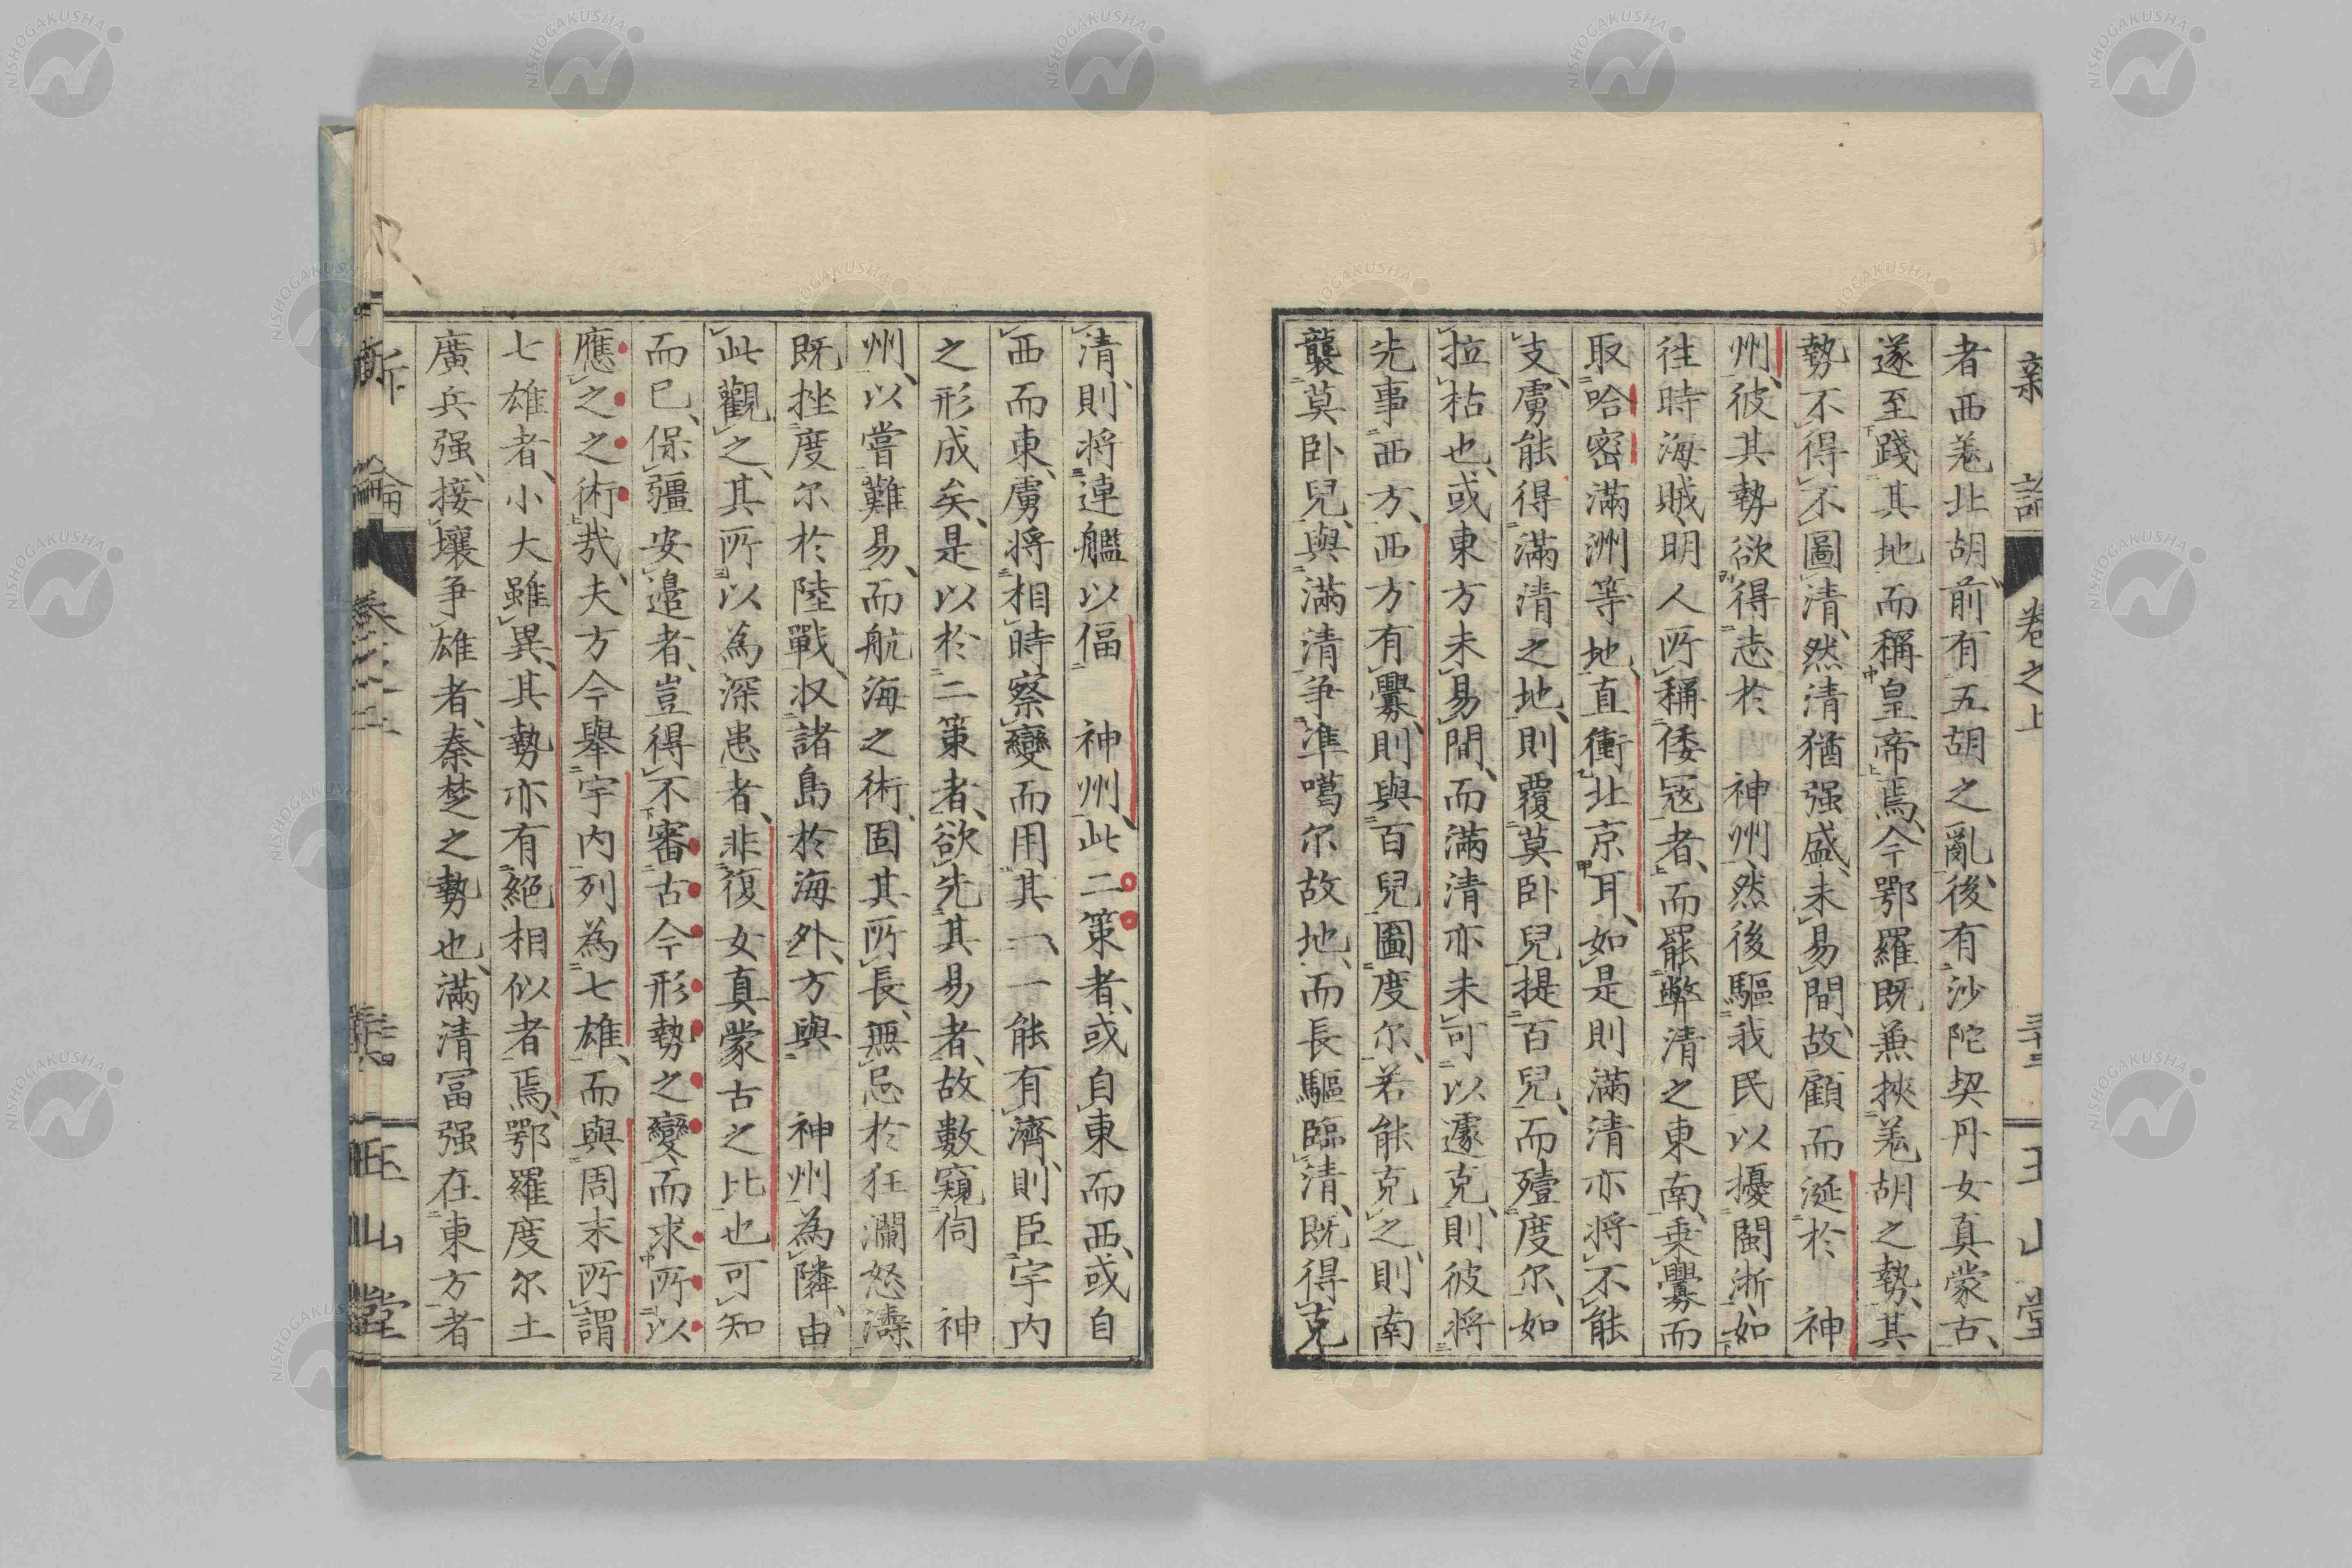 新論 卷之上 玉山堂
者西羗北胡前有五胡之亂後有沙陀契丹女真蒙古
遂至踐其地而稱皇帝焉今鄂羅既兼挾羗胡之勢其
勢不得不圖清然清猶强盛未易間故顧而涎於 神
州彼其勢欲得志於 神州然後驅我民以擾閩浙如
往時海賊明人所稱倭寇者而罷弊清之東南乘釁而
取哈密滿洲等地直衝北京耳如是則滿清亦將不能
支虜能得滿清之地則覆莫卧兒提百兒而殪度尔如
拉枯也或東方未易間而滿清亦未可以遽克則彼將
先事西方西方有釁則與百兒圖度尔若能克之則南
襲莫卧兒與滿清爭準噶尔故地而長驅臨清既得克
清則將連艦以偪 神州此二策者或自東而西或自
西而東虜將相時察變而用其一一能有濟則臣宇内
之形成矣是以於二策者欲先其易者故數窺伺 神
州以嘗難易而航海之術固其所長無忌於狂瀾怒濤
既挫度尔於陸戰収諸島於海外方與 神州為隣由
此觀之其所以為深患者非復女真蒙古之比也可知
而已保疆安邊者豈得不審古今形勢之變而求所以
應之之術哉夫方今舉宇内列為七雄而與周末所謂
七雄者小大雖異其勢亦有絶相似者焉鄂羅度尔土
廣兵强接壤爭雄者秦楚之勢也滿清冨强在東方者
新論 玉山堂